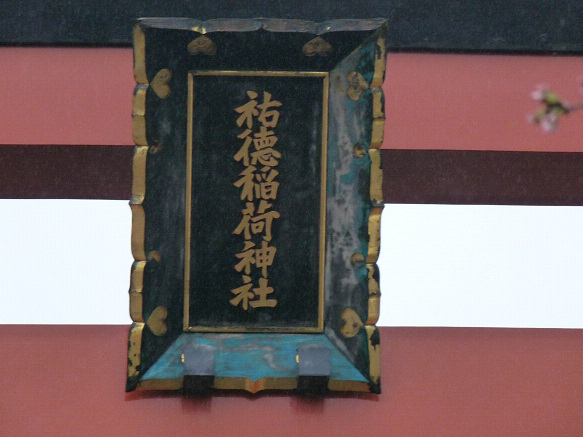 祐德稲荷神社